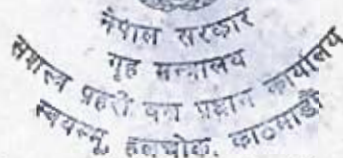 नेपाल सरकार
गृह मन्त्रालय
सशस्त्र प्रहरी प्रधान कार्यालय
स्वयम्भू, हलचोक, काठमाडौं